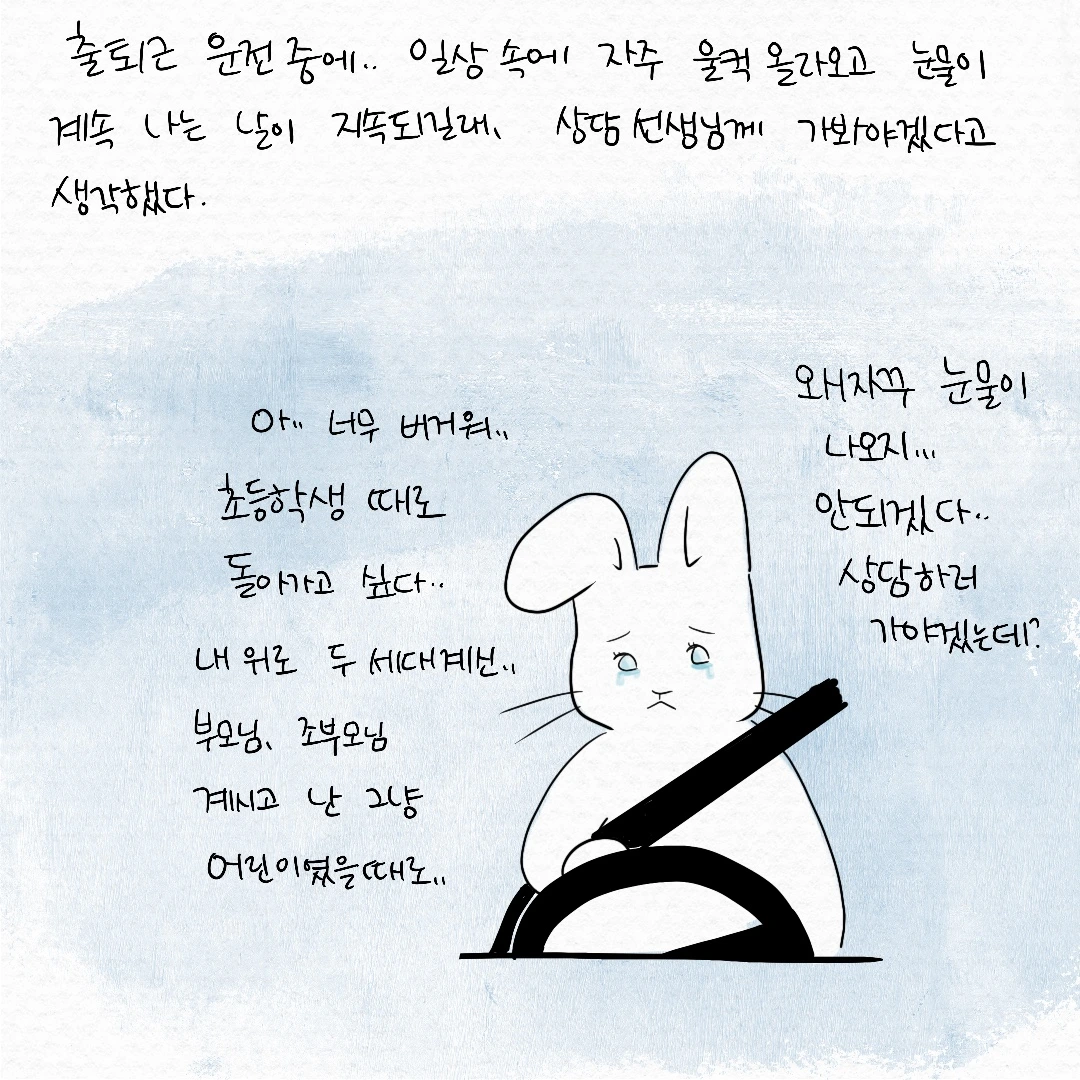 출퇴근 운전 중에.. 일상 속에 자주 울컥 올라오고 눈물이
계속 나는 날이 지속되길래, 상담 선생님께 가봐야겠다고
생각했다.
아.. 너무 버거워..
초등학생 때로
돌아가고 싶다..
내 위로 두 세대 계신..
부모님, 조부모님
계시고 난 그냥
어린이였을때로..
왜 자꾸 눈물이
나오지...
안되겠다..
상담하러
가야겠는데?